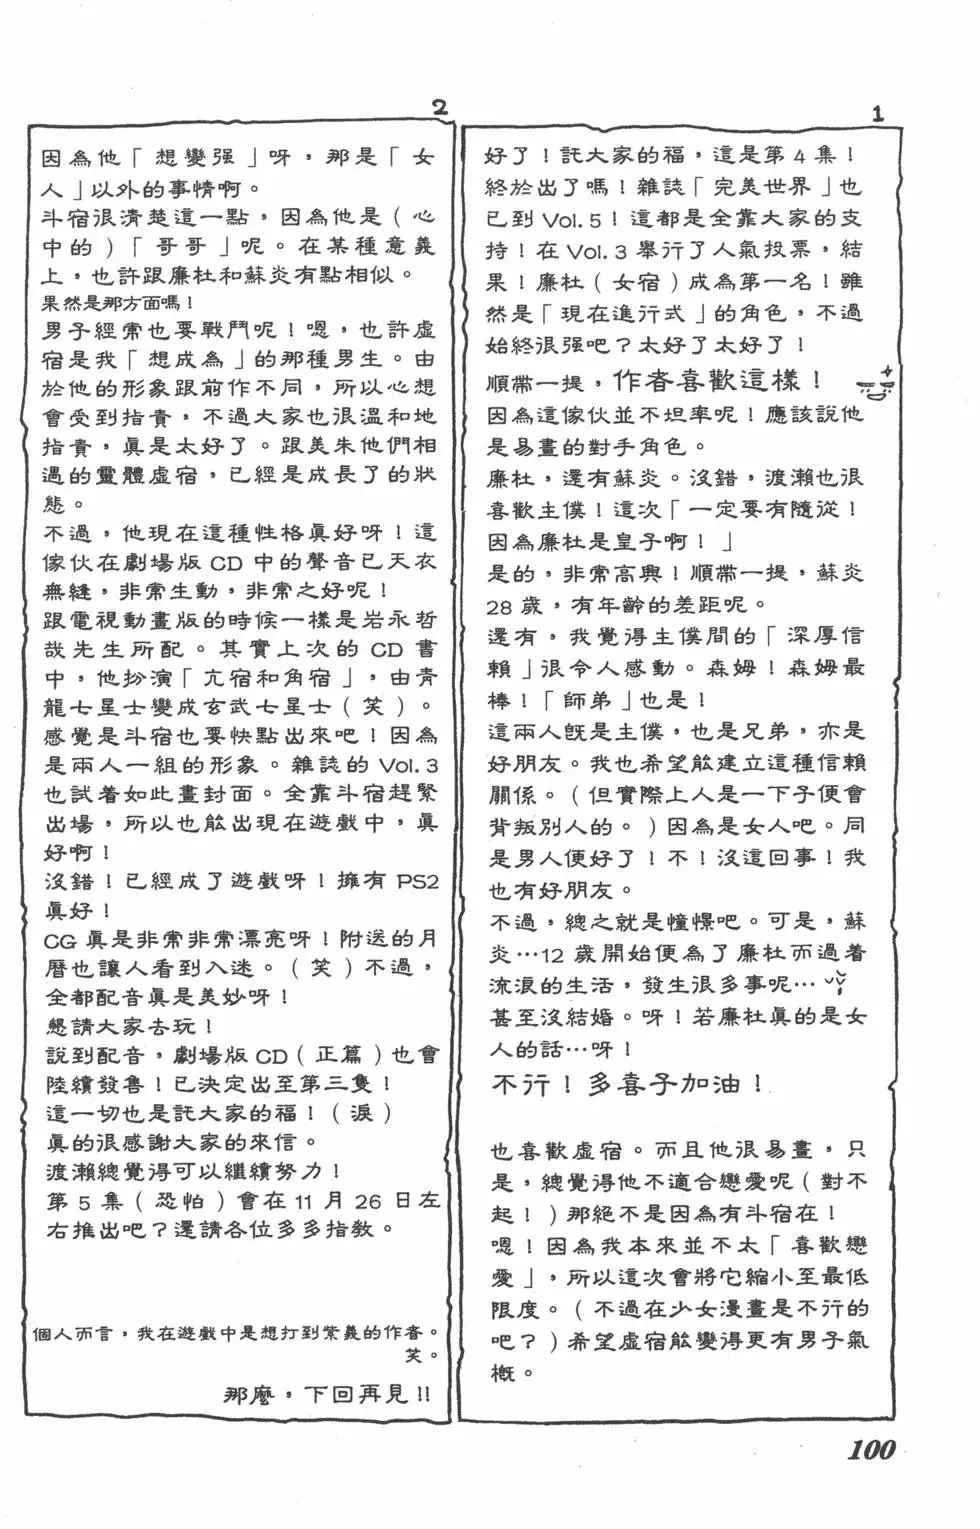 1
好了！託大家的福，這是第4集！
終於出了嗎！雜誌「完美世界」也
已到Vol.5！這都是全靠大家的支
持！在Vol.3舉行了人氣投票，結
果！廉杜（女宿）成為第一名！雖
然是「現在進行式」的角色，不過
始終很强吧？太好了太好了！
順帶一提，作者喜歡這樣！
因為這傢伙並不坦率呢！應該說他
是易畫的對手角色。
廉杜，還有蘇炎。沒錯，渡瀨也很
喜歡主僕！這次「一定要有隨從！
因為廉杜是皇子啊！」
是的，非常高興！順帶一提，蘇炎
28歲，有年齡的差距呢。
還有，我覺得主僕間的「深厚信
賴」很令人感動。森姆！森姆最
棒！「師弟」也是！
這兩人既是主僕，也是兄弟，亦是
好朋友。我也希望能建立這種信賴
關係。（但實際上人是一下子便會
背叛別人的。）因為是女人吧。同
是男人便好了！不！沒這回事！我
也有好朋友。
不過，總之就是憧憬吧。可是，蘇
炎…12歲開始便為了廉杜而過着
流浪的生活，發生很多事呢…
甚至沒結婚。呀！若廉杜真的是女
人的話…呀！
不行！多喜子加油！
也喜歡虛宿。而且他很易畫，只
是，總覺得他不適合戀愛呢（對不
起！）那絕不是因為有斗宿在！
嗯！因為我本來並不太「喜歡戀
愛」，所以這次會將它縮小至最低
限度。（不過在少女漫畫是不行的
吧？）希望虛宿能變得更有男子氣
概。
2
因為他「想變强」呀，那是「女
人」以外的事情啊。
斗宿很清楚這一點，因為他是（心
中的）「哥哥」呢。在某種意義
上，也許跟廉杜和蘇炎有點相似。
果然是那方面嗎！
男子經常也要戰鬥呢！嗯，也許虛
宿是我「想成為」的那種男生。由
於他的形象跟前作不同，所以心想
會受到指責，不過大家也很溫和地
指責，真是太好了。跟美朱他們相
遇的靈體虛宿，已經是成長了的狀
態。
不過，他現在這種性格真好呀！這
傢伙在劇場版CD中的聲音已天衣
無縫，非常生動，非常之好呢！
跟電視動畫版的時候一樣是岩永哲
哉先生所配。其實上次的CD書
中，他扮演「亢宿和角宿」，由青
龍七星士變成玄武七星士（笑）。
感覺是斗宿也要快點出來吧！因為
是兩人一組的形象。雜誌的Vol.3
也試着如此畫封面。全靠斗宿趕緊
出場，所以也能出現在遊戲中，真
好啊！
沒錯！已經成了遊戲呀！擁有PS2
真好！
CG真是非常非常漂亮呀！附送的月
曆也讓人看到入迷。（笑）不過，
全都配音真是美妙呀！
懇請大家去玩！
說到配音，劇場版CD（正篇）也會
陸續發售！已決定出至第三隻！
這一切也是託大家的福！（淚）
真的很感謝大家的來信。
渡瀨總覺得可以繼續努力！
第5集（恐怕）會在11月26日左
右推出吧？還請各位多多指教。
個人而言，我在遊戲中是想打到紫義的作者。
笑。
那麼，下回再見!!
100